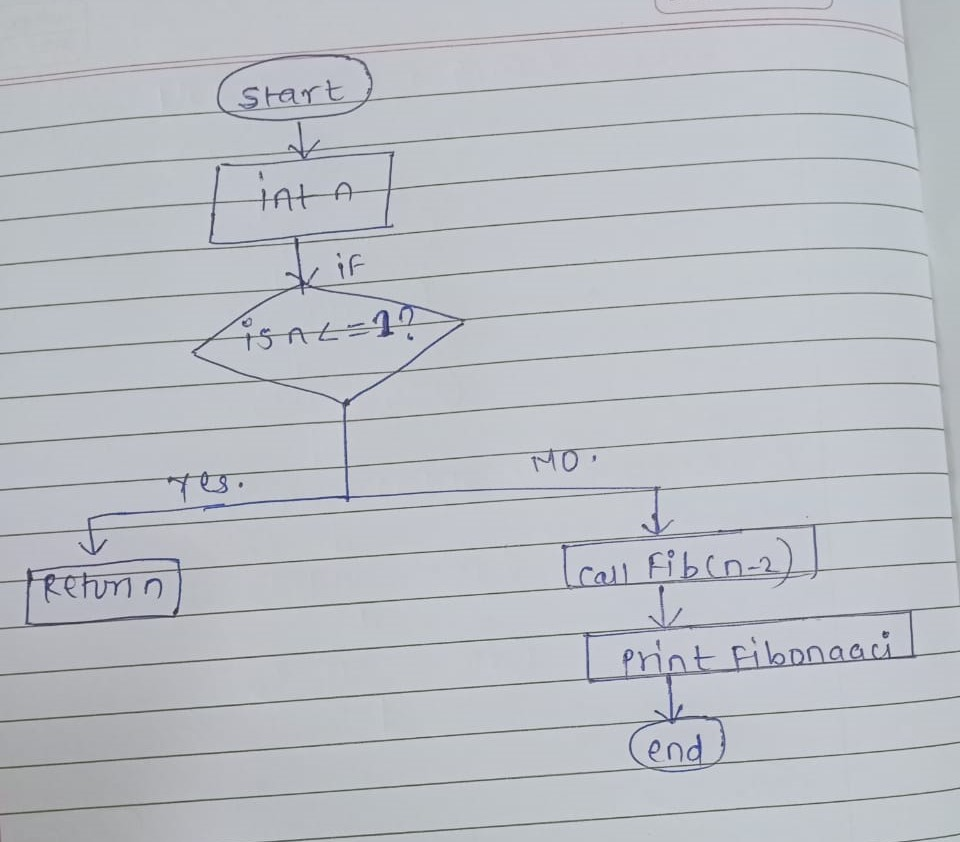 Start
int n
if
is n <=1?
Yes.
NO.
Return n
Call Fib(n-2)
Print Fibonaaci
end